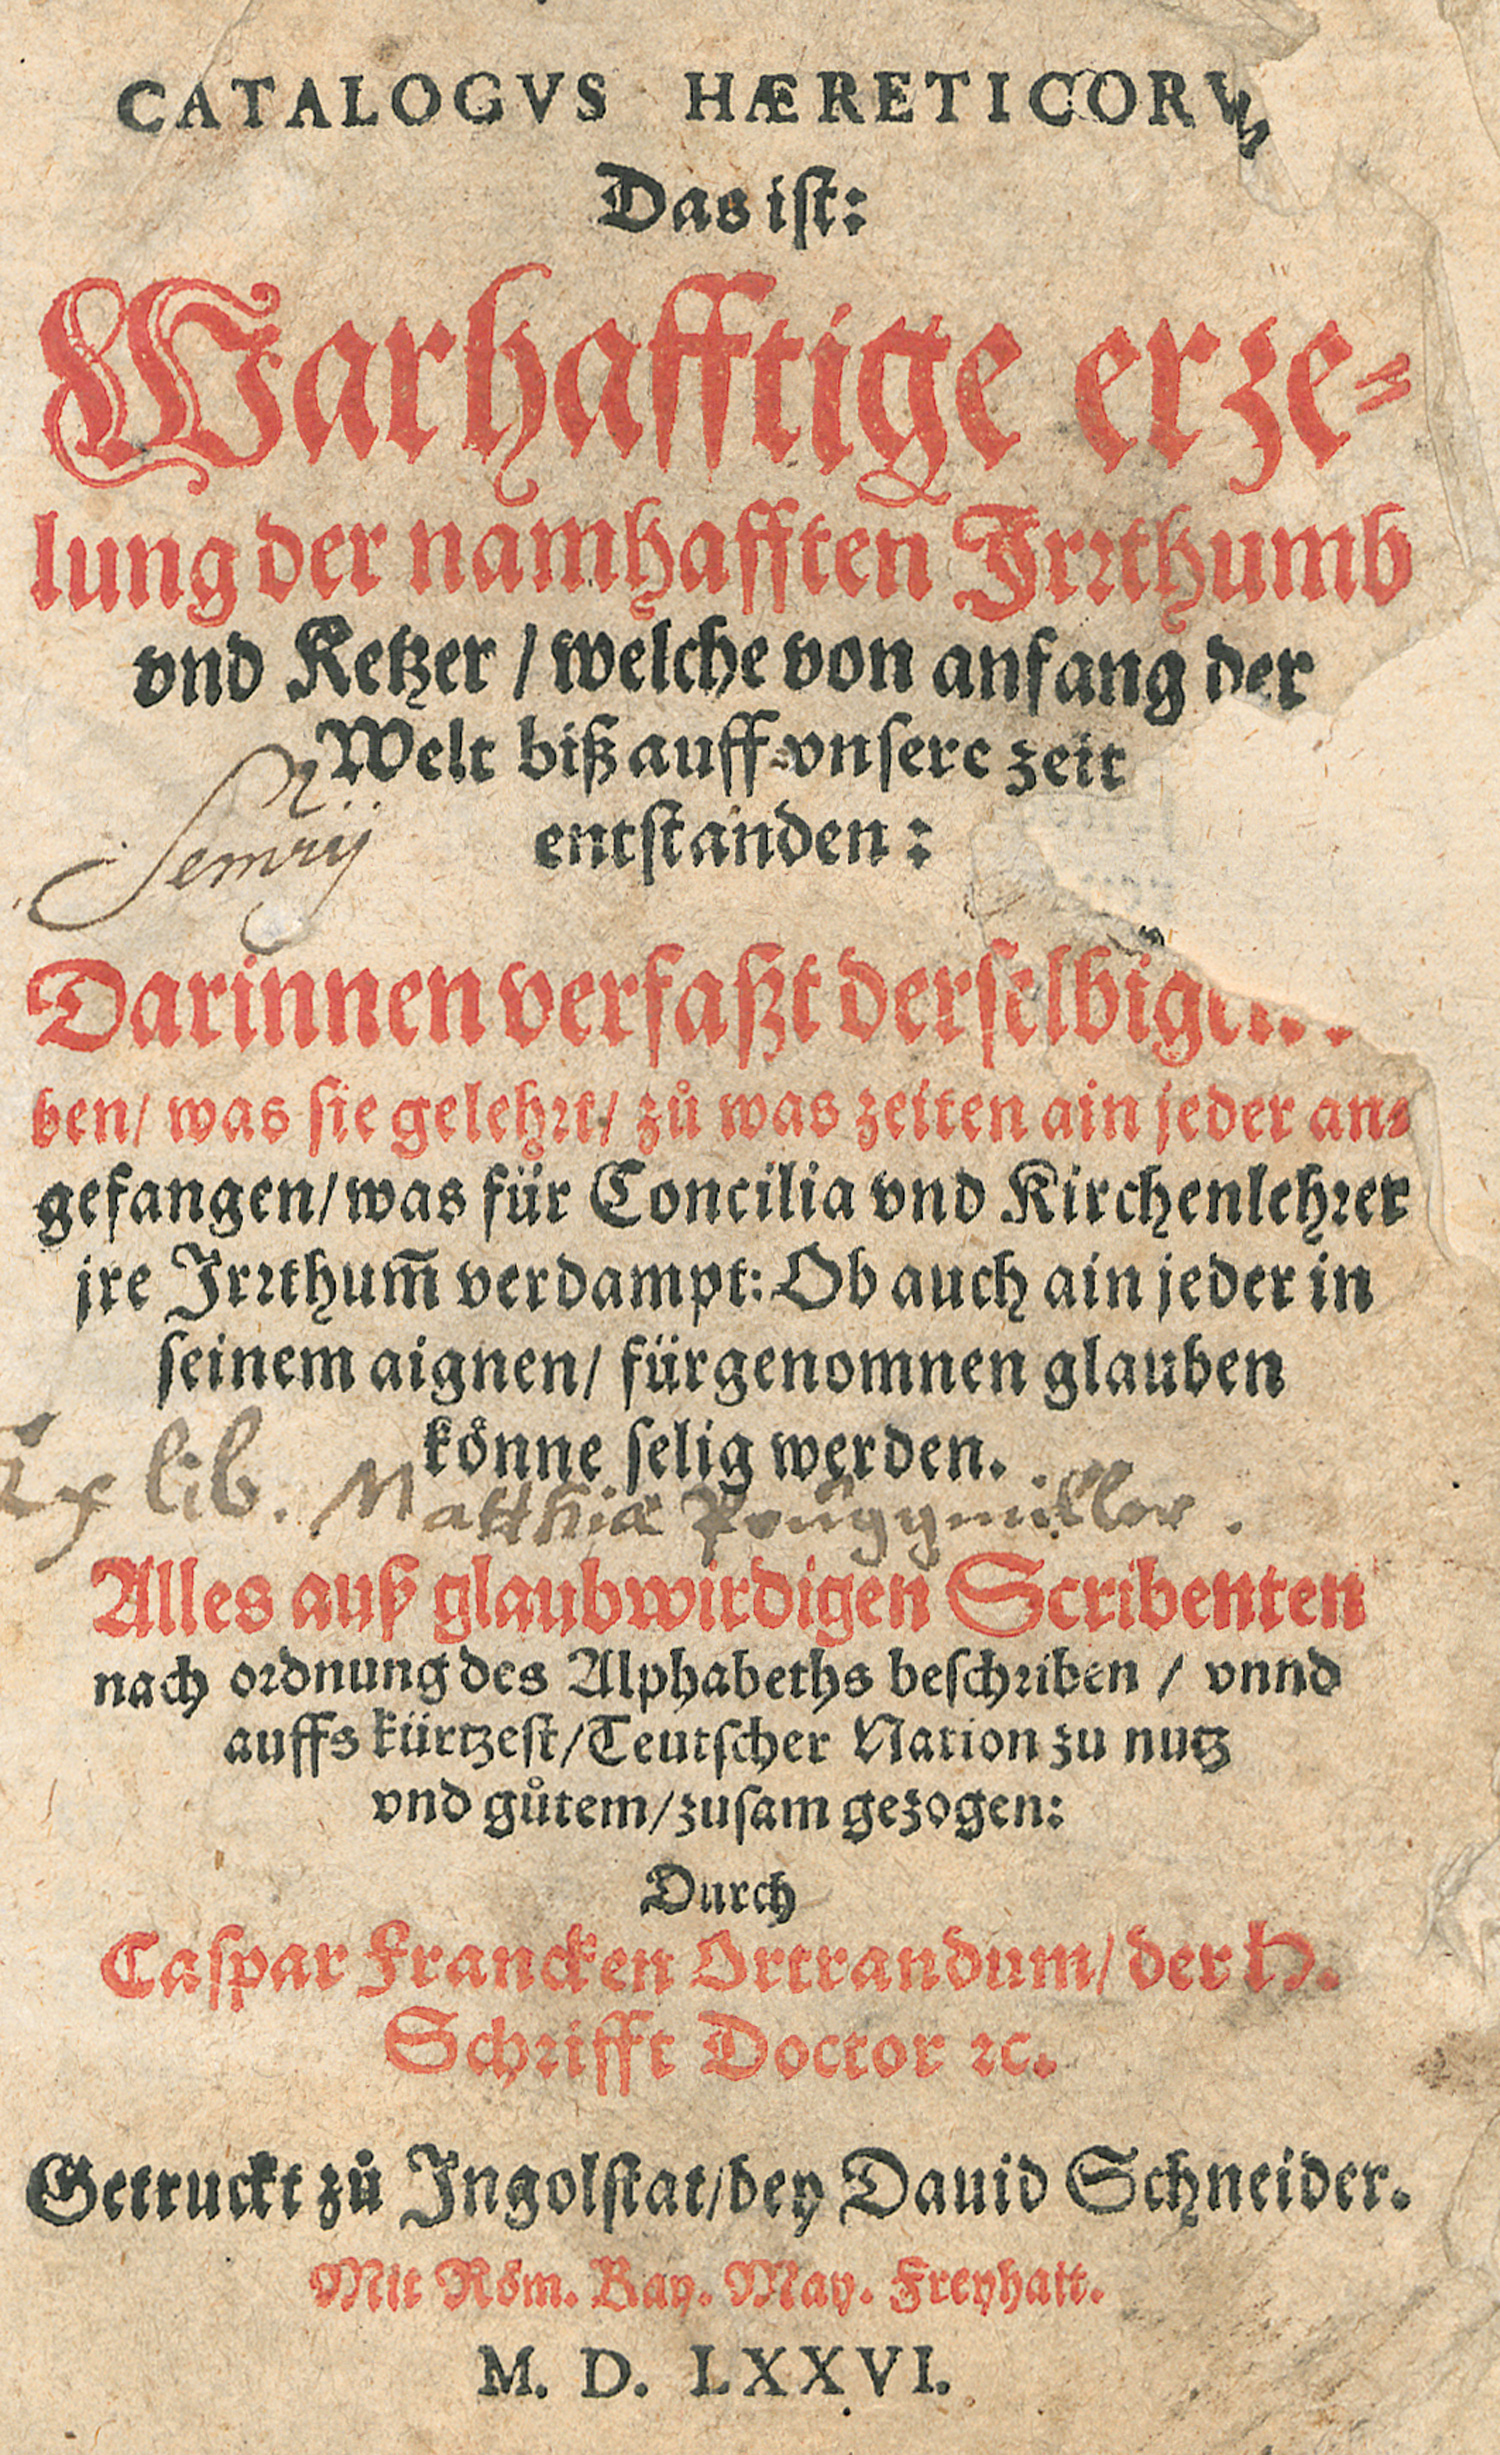 CATALOGVS HÆRETICORV
Das iſt:
Warhafftige erze⸗
lung der namhafften Irꝛthumb
vnd Ketzer / welche von anfang der
Welt biß auff vnſere zeit
entſtanden:
Darinnen verfaßt derſelbigen
ben/ was ſie gelehꝛt/ zů was zeiten ain jeder an⸗
gefangen/ was für Concilia vnd Kirchenlehꝛer
jre Irꝛthum̃ verdampt: Ob auch ain jeder in
ſeinem aignen/ fürgenomnen glauben
könne ſelig werden.
Ex lib. Matthiæ
Alles auß glaubwirdigen Scribenten
nach oꝛdnung des Alphabeths beſchꝛiben / vnnd
auffs kürtzeſt/ Teutſcher Nation zu nutz
vnd gůtem/ zuſam gezogen:
Durch
Caſpar Francken Ortrandum/ der H.
Schꝛifft Doctor ꝛc.
Getruckt zů Ingolſtat/ bey Dauid Schneider.
Mit Röm. Kay. May. Freyhait.
M. D. LXXVI.